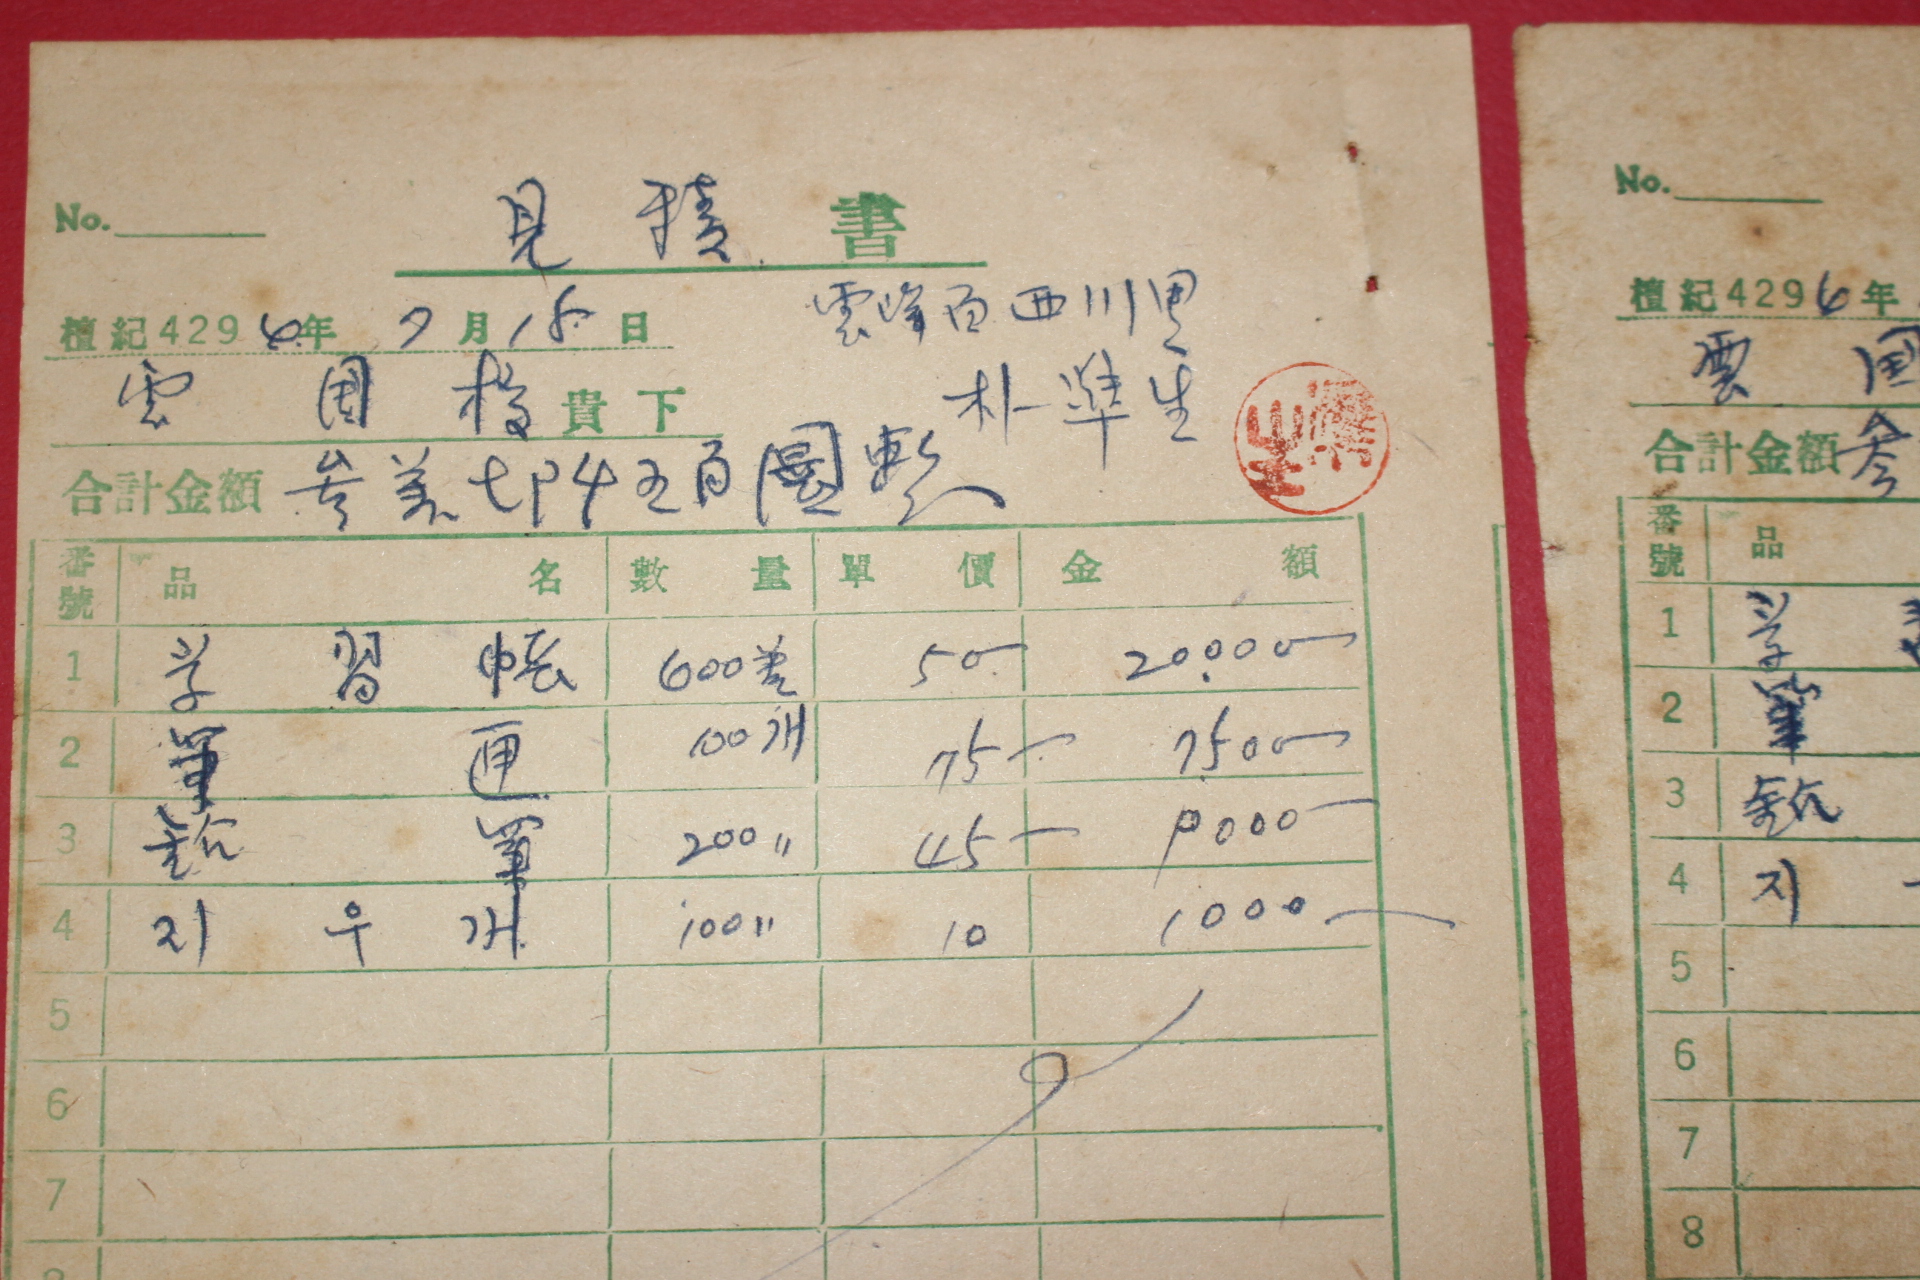 No.
見積書
檀紀4296年 7月15日
雲峰面西川里
雲国校 貴下
朴準生
合計金額 参萬七阡五百圜整
番號 品名 數量 單價 金額
1 学習帳 600券 50 20000
2 筆匣 100개 75 7500
3 鉛筆 200〃 45 9000
4 지우개 100〃 10 1000
5
6
7
No.
檀紀4296年
雲国
合計金額 参
番號 品
1 学習
2 筆
3 鉛
4 지
5
6
7
8